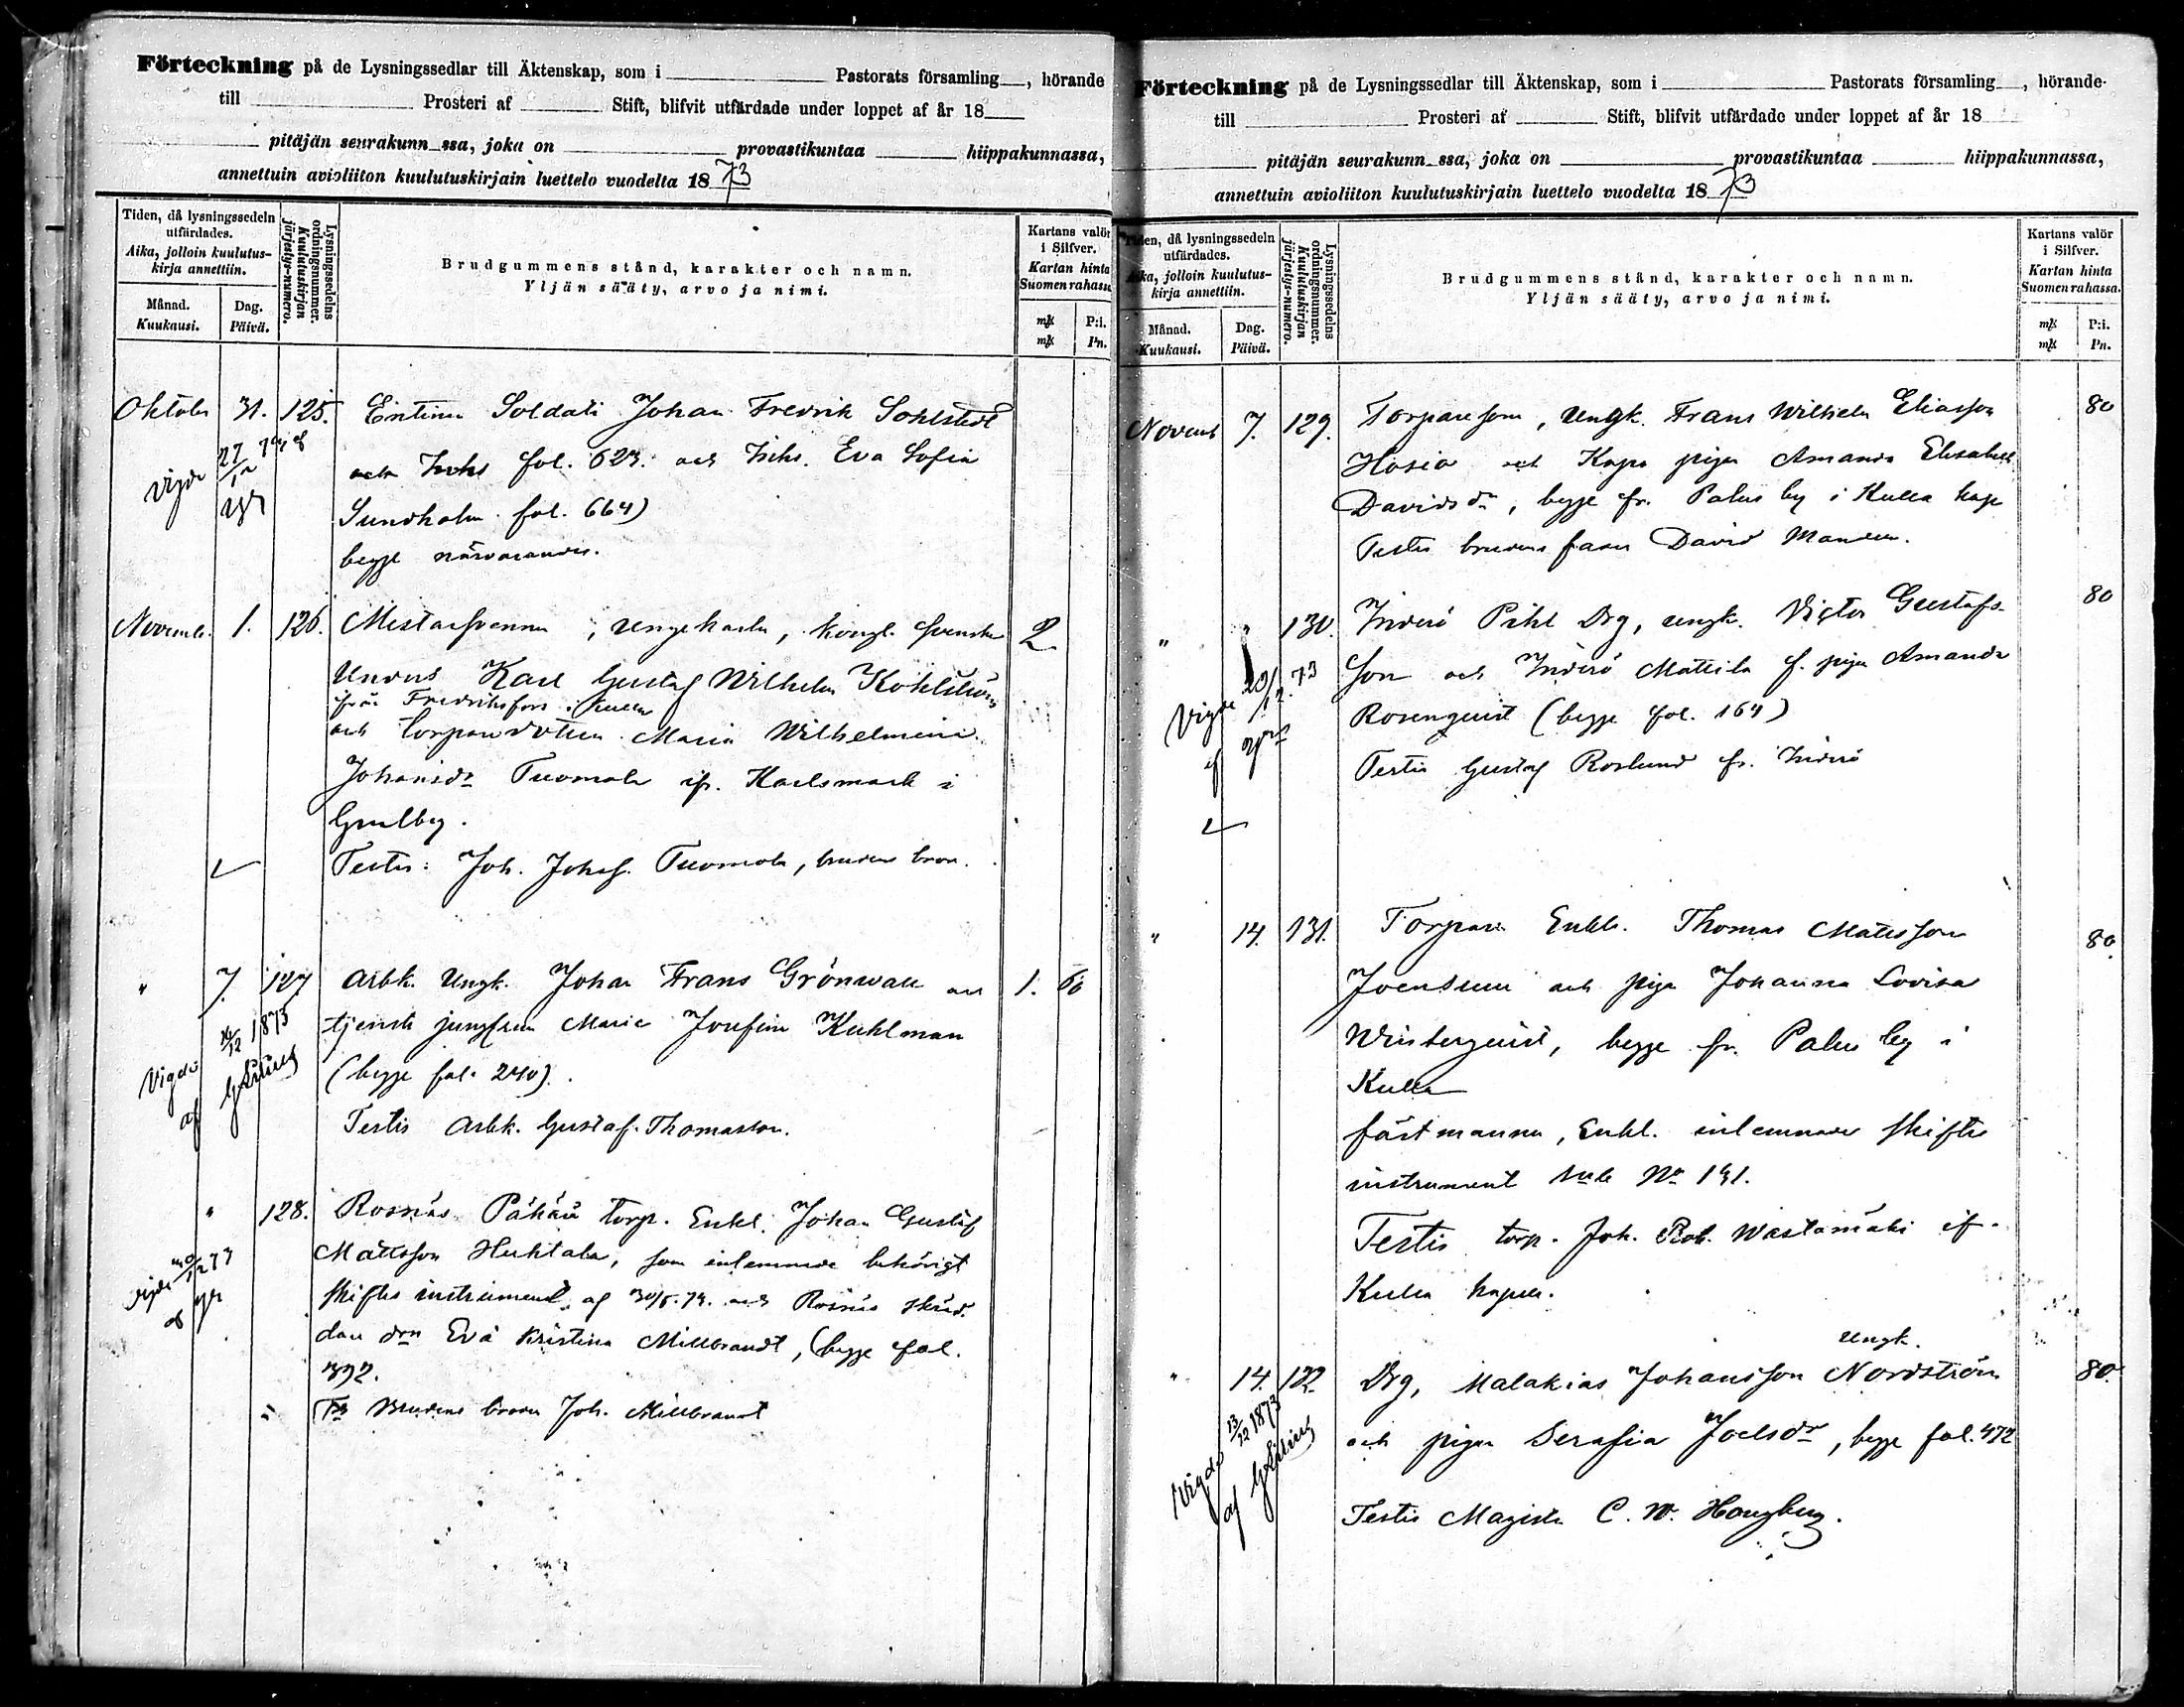 Förteckning på de Lysningssedlar till Äktenskap, som i Pastorats församling, hörande
till Prosteri af Stift, blifvit utfärdade under loppet af år 18
pitäjän seurakunn ssa, joka on provastikuntaa hiippakunnassa,
annettuin avioliiton kuulutuskirjain luettelo vuodelta 1873
Tiden, då lysningssedeln utfärdades.
Aika, jolloin kuulutus-kirja annettiin.
Månad. Kuukausi.
Dag. Päivä.
Lysningssedelns ordningsnummer.
Kuulutuskirjan järjestys-numero.
Brudgummens stånd, karakter och namn.
Yljän sääty, arvo ja nimi.
Kartans valör i Silfver.
Kartan hinta Suomen rahassa
mk P:i.
mk Pn.
Oktober 31. 125. Soldati Johan Fredrik Sohlstedt
fol. 623. och Eva Sofia
Sundholm fol. 664)
begge närvarande.
vigde 27
Novemb. 1. 126. , ungkarlen, kongl. svenska 2
Karl Gustaf Wilhelm
från Fredriksfors i Kulla
och torparedottren Maria Wilhelmina
Johansdr Tuomola ifr. Karlsmark i
Testis: Joh. Johsf. Tuomola, brudens bror.
" 7. 127 Arbk. Ungk. Johan Frans Grönwall och 1. 60
tjenste jungfrun Maria Josefina Kuhlman
(begge fol. 240).
Testis Arbk. Gustaf Thomasson.
Vigde 12 1873
af
" 128. Rosnäs torp. Enkl. Johan Gustaf
Mattsson Huhtala, som inlemnade behörigt
skiftes instrument af och Rosnäs
Eva Kristina Millbrandt, (begge fol.
392.
Ts Brudens broder Joh. Millbrandt
vigde 12 73
af
Förteckning på de Lysningssedlar till Äktenskap, som i Pastorats församling, hörande
till Prosteri af Stift, blifvit utfärdade under loppet af år 18
pitäjän seurakunn ssa, joka on provastikuntaa hiippakunnassa,
annettuin avioliiton kuulutuskirjain luettelo vuodelta 1873
Tiden, då lysningssedeln utfärdades.
Aika, jolloin kuulutus-kirja annettiin.
Månad. Kuukausi.
Dag. Päivä.
Lysningssedelns ordningsnummer.
Kuulutuskirjan järjestys-numero.
Brudgummens stånd, karakter och namn.
Yljän sääty, arvo ja nimi.
Kartans valör i Silfver.
Kartan hinta Suomen rahassa.
mk P:i.
mk Pn.
Novemb 7. 129. Torpareson, Ungk. Frans Wilhelm Eliasson 80
Hosio och pigan Amanda Elisabet
Davidsdr, begge fr. Palus by i Kulla
Testis brudens fader David
" " 130. Inderö Pihl Drg, ungk. Victor Gustafs- 80
son och Inderö Mattila f. pigan Amanda
Rosenquist (begge fol. 164)
Testis Gustaf Roslund fr. Inderö
Vigde 20/12.73
af
" 14. 131. Torpare Enkl. Thomas Mattsson 80.
Joensuu och pigan Johanna Lovisa
Winterquist, begge fr. Palus by i
Kulla
fästmannen, Enkl. inlemnade skiftes
instrument sub No 131.
Testis torp. Joh. Rob. Wästamäki if.
Kulla kapell.
Ungk.
" 14. 132. Drg, Malakias Johansson Nordström 80.
och pigan Serafia Joelsdr, begge fol. 472
Testis Magister C. W. Hongberg.
Vigde 13/12 1873
af